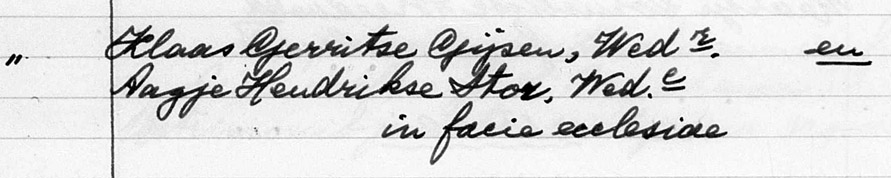 " Klaas Gerritse Gijsen, Wed r. en
Aagje Hendrikse Stor, Wed. e
in facie ecclesiae